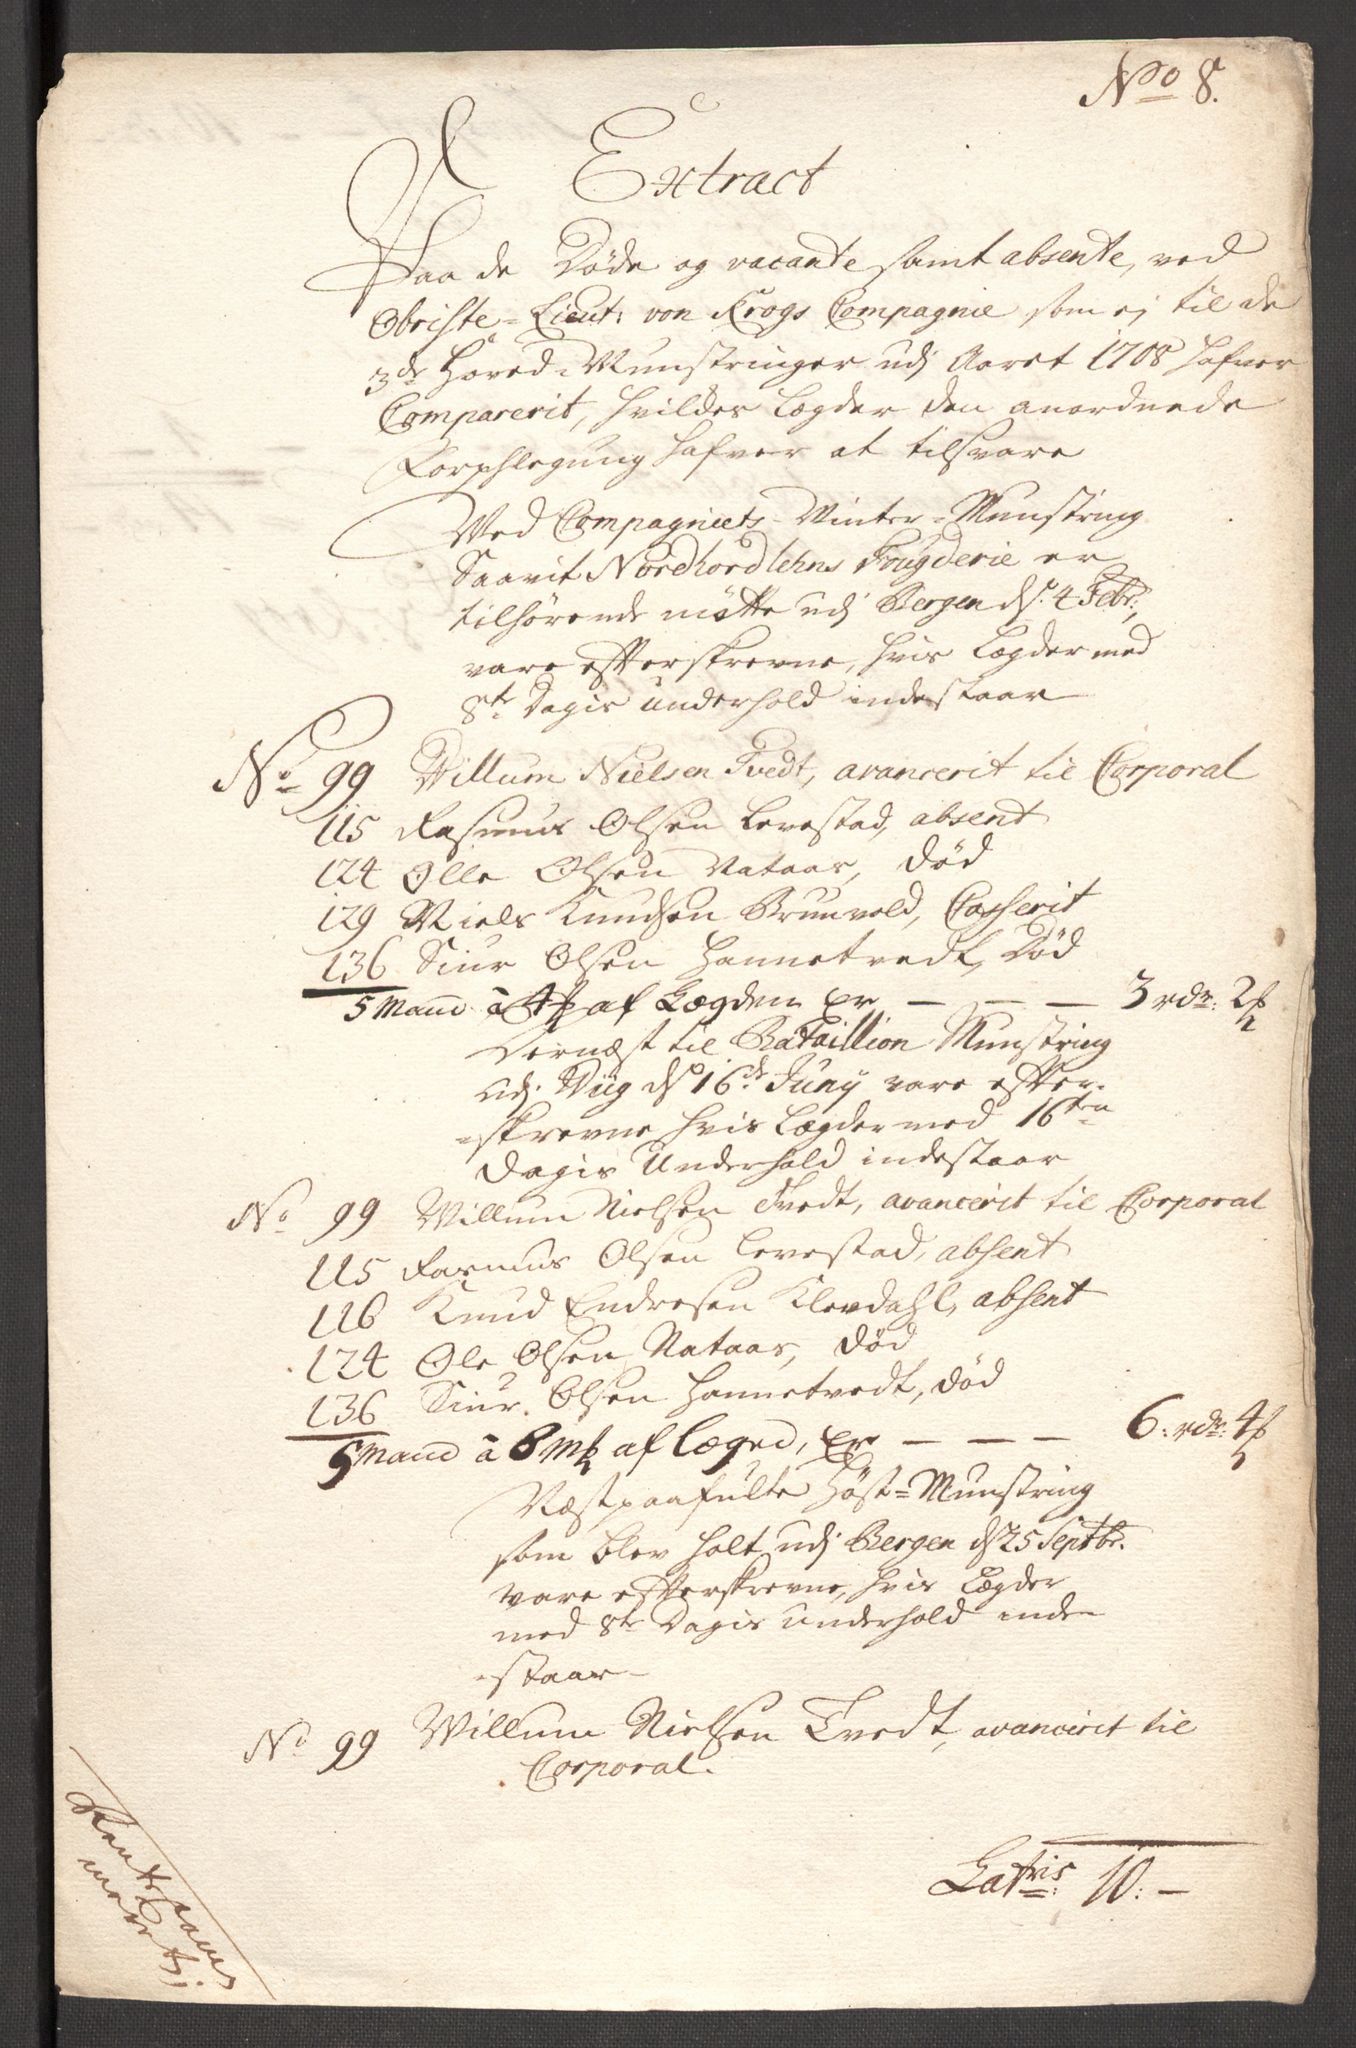 No 8.
Extract
Paa de Døde og vacante samt absente, ved
Obriste=Lieut: von Krogs Compagnie som ej til de
3de Hoved-Munstringer udj Aaret 1708 hafver
Comparerit, hvildes Lægder den anordnede
Forphlegung hafver at tilsvare
Ved Compagniets-Vinter=Munstring
Saavit Nordhordlehns Fougderie er
tilhørende møtte udj Bergen ds: 4 Febr:,
vare efterskrevne, hvis Lægder med
8te Dagis underhold indestaar
No 99 Willum Nielsen Tvedt, avancerit til Corporal
115 Rasmus Olsen Levestad, absent
124 Olle Olsen Nataas, død
129 Niels Knudsen Brunvold, Casserit
136 Siur Olsen Hannetvedt, Død
5 Mand à 4 af Lægden er — — — 3 rdr: 2
Dernæst til Bataillion Munstring
udj Viig ds 16de Juny vare efter-
=skrevne hvis Lægder med 16ten
Dagis Underhold indestaar
No 99 Willum Nielsen Tvedt, avancerit til Corporal
115 Rasmus Olsen Levestad, absent
116 Knud Endresen Klevdahl, absent
124 Ole Olsen Nataas, død
136 Siur Olsen Hannetvedt, død
5 Mand à 8 Mk af Lægd, er — — — 6: rdr: 4
Næstpaafulte Høst=Munstring
som blev holt udj Bergen ds 25 Septbr.
vare efterskrevne, hvis Lægder
med 8te Dagis underhold inde
=staar-
No 99 Willum Nielsen Tvedt, avancerit til
Corporal.
Latris 10: —